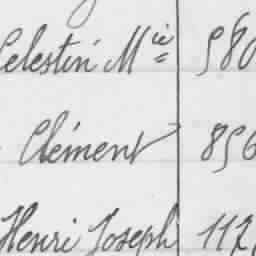 Celestin Mie 580
Clément 856
Henri Joseph 117